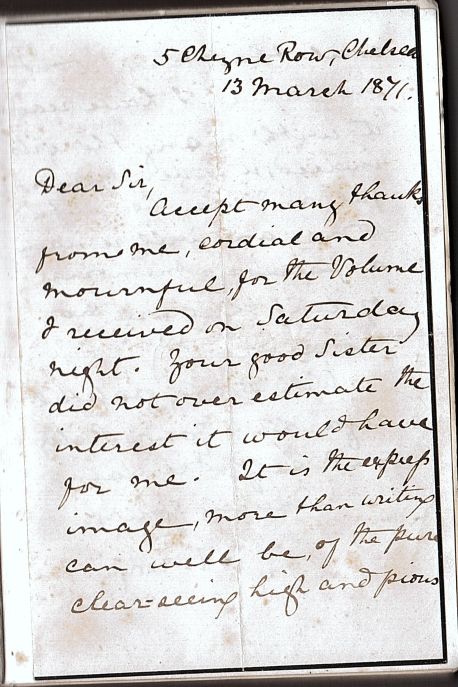 5 Cheyne Row, Chelsea
13 March 1871.
Dear Sir,
Accept many thanks
from me, cordial and
mournful, for the Volume
I received on Saturday
night. Your good Sister
did not over estimate the
interest it would have
for me. It is the express
image, more than writing
can well be, of the pure
clear=seeing high and pious